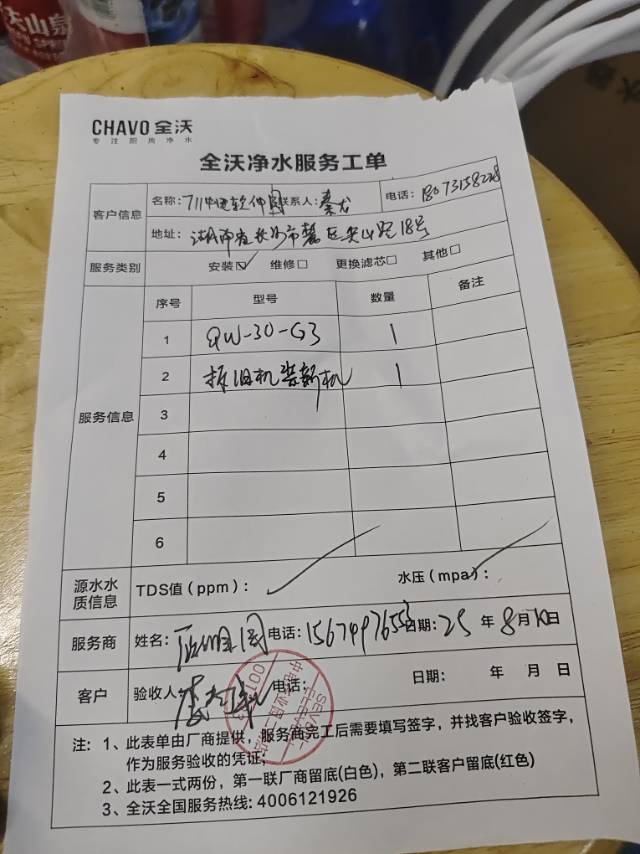 CHAVO 全沃
专注厨房净水
全沃净水服务工单
客户信息
名称: 711中电软件园 联系人: 秦龙 电话: 18073158228
地址: 湖南省长沙市麓区尖山路18号
服务类别 安装☑ 维修☐ 更换滤芯☐ 其他☐
服务信息
序号 型号 数量 备注
1 QW-30-G3 1
2 拆旧机装新机 1
3
4
5
6
源水水质信息 TDS值(ppm): 水压(mpa):
服务商 姓名: 电话: 15674976553 日期: 25 年 8月10日
客户 验收人 电话: 日期: 年 月 日
注: 1、此表单由厂商提供, 服务商完工后需要填写签字, 并找客户验收签字,
作为服务验收的凭证;
2、此表一式两份, 第一联厂商留底(白色), 第二联客户留底(红色)
3、全沃全国服务热线: 4006121926